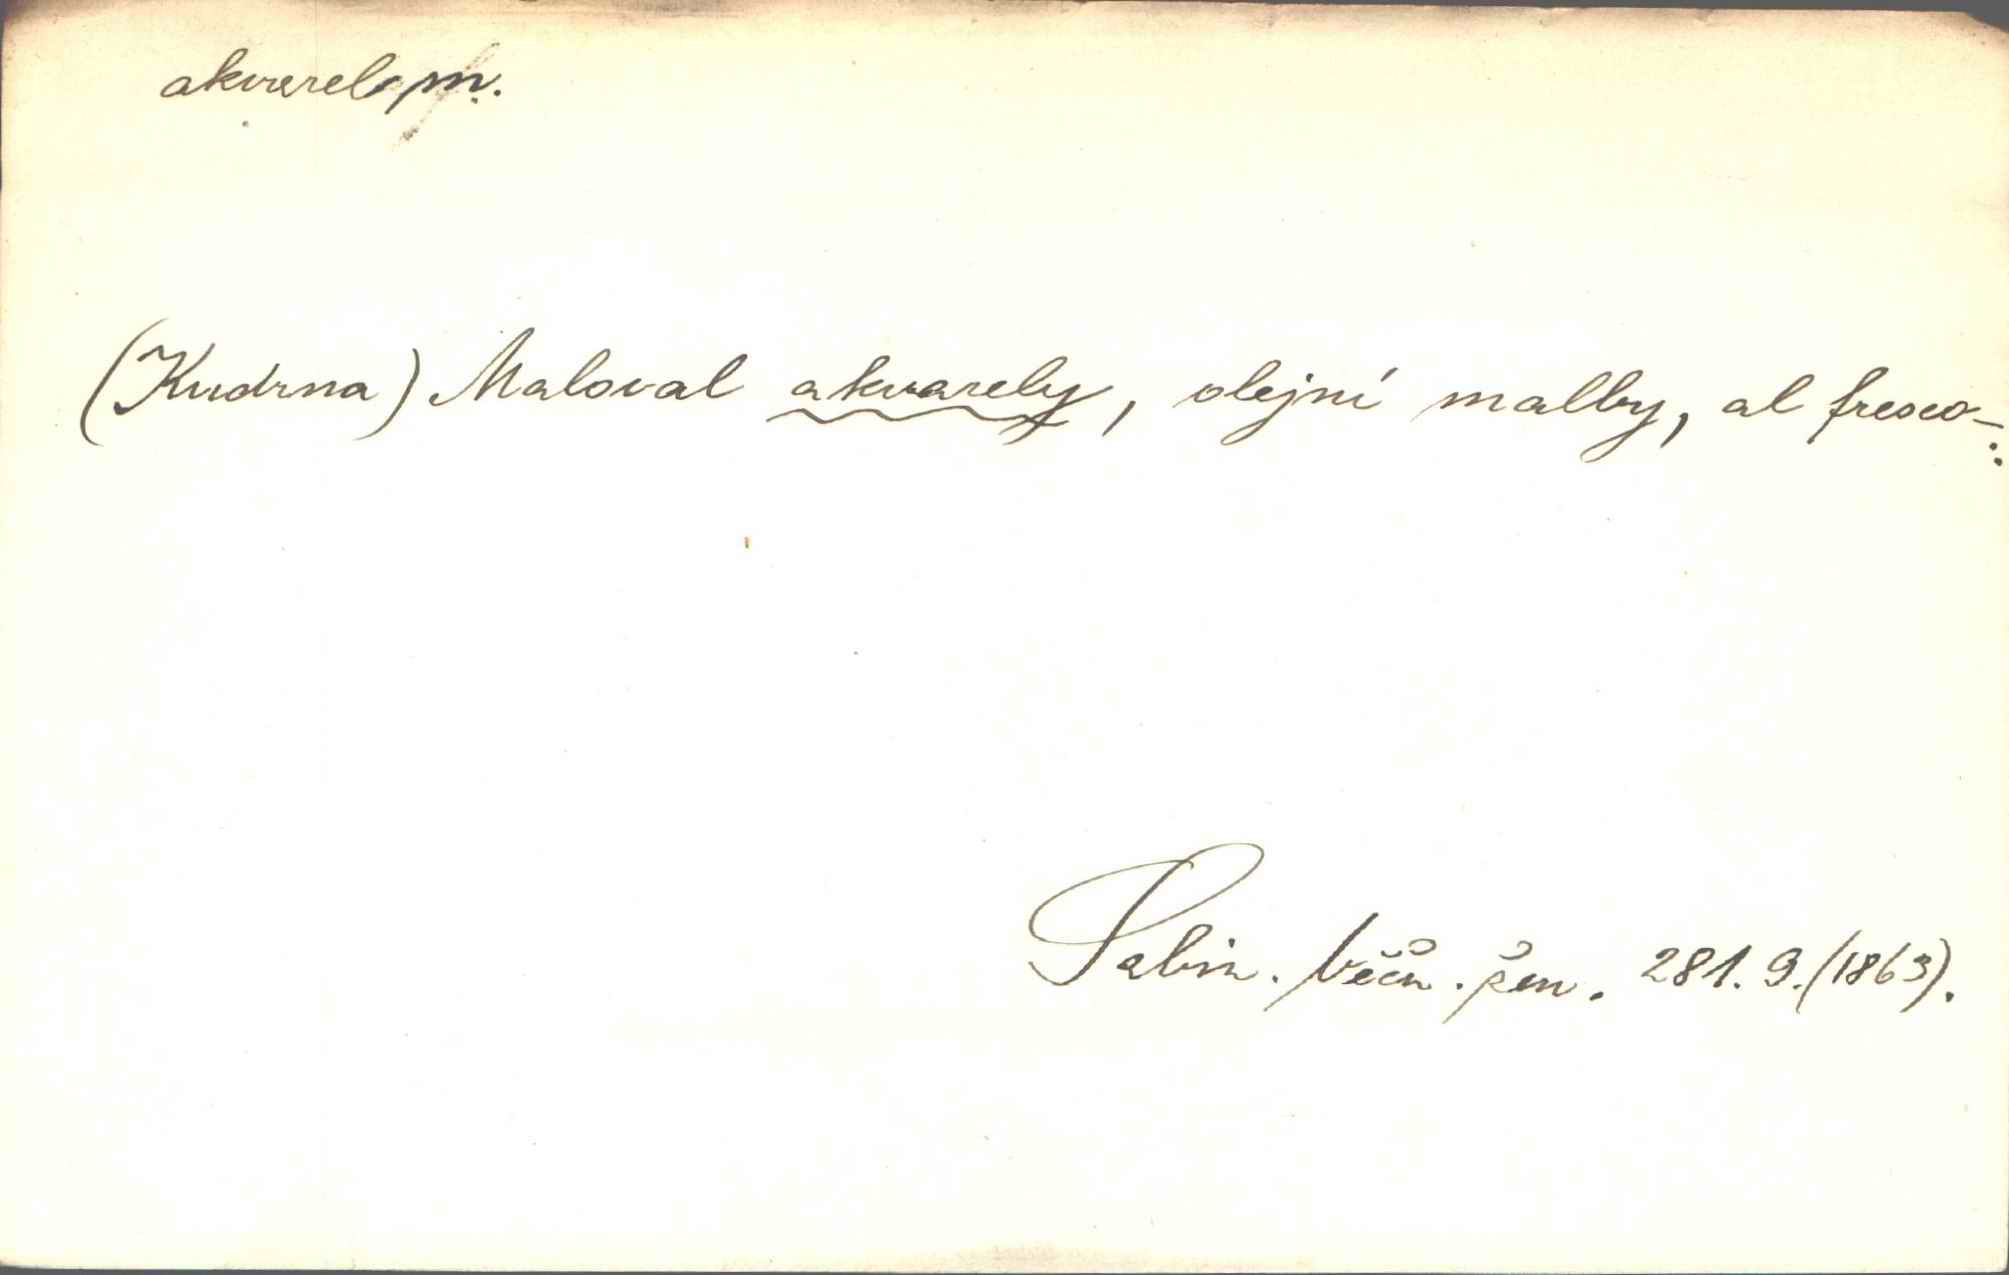 akvarel, m.
(Kudrna) Maloval akvarely, olejní malby, al fresco-.
Sabin. Věčn. žen. 281. 9. (1863).